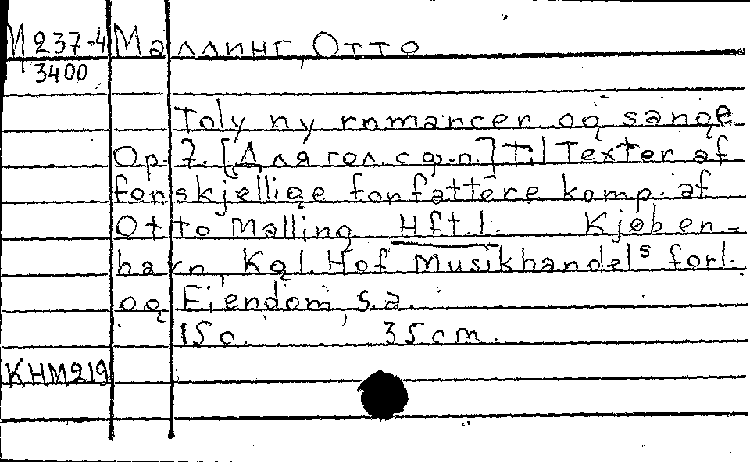 М237-4 Маллинг, Отто
3400
Toly ny romancer og sange
Op. 7. [Для гол. с ф.-п.] Til Texter af
forskjellige forfattere komp. af
Otto Malling Hft.1. Kjøben-
havn, Kgl. Hof Musikhandels forl.
og Eiendom, s.a.
15 c. 35 cm.
КНМ219